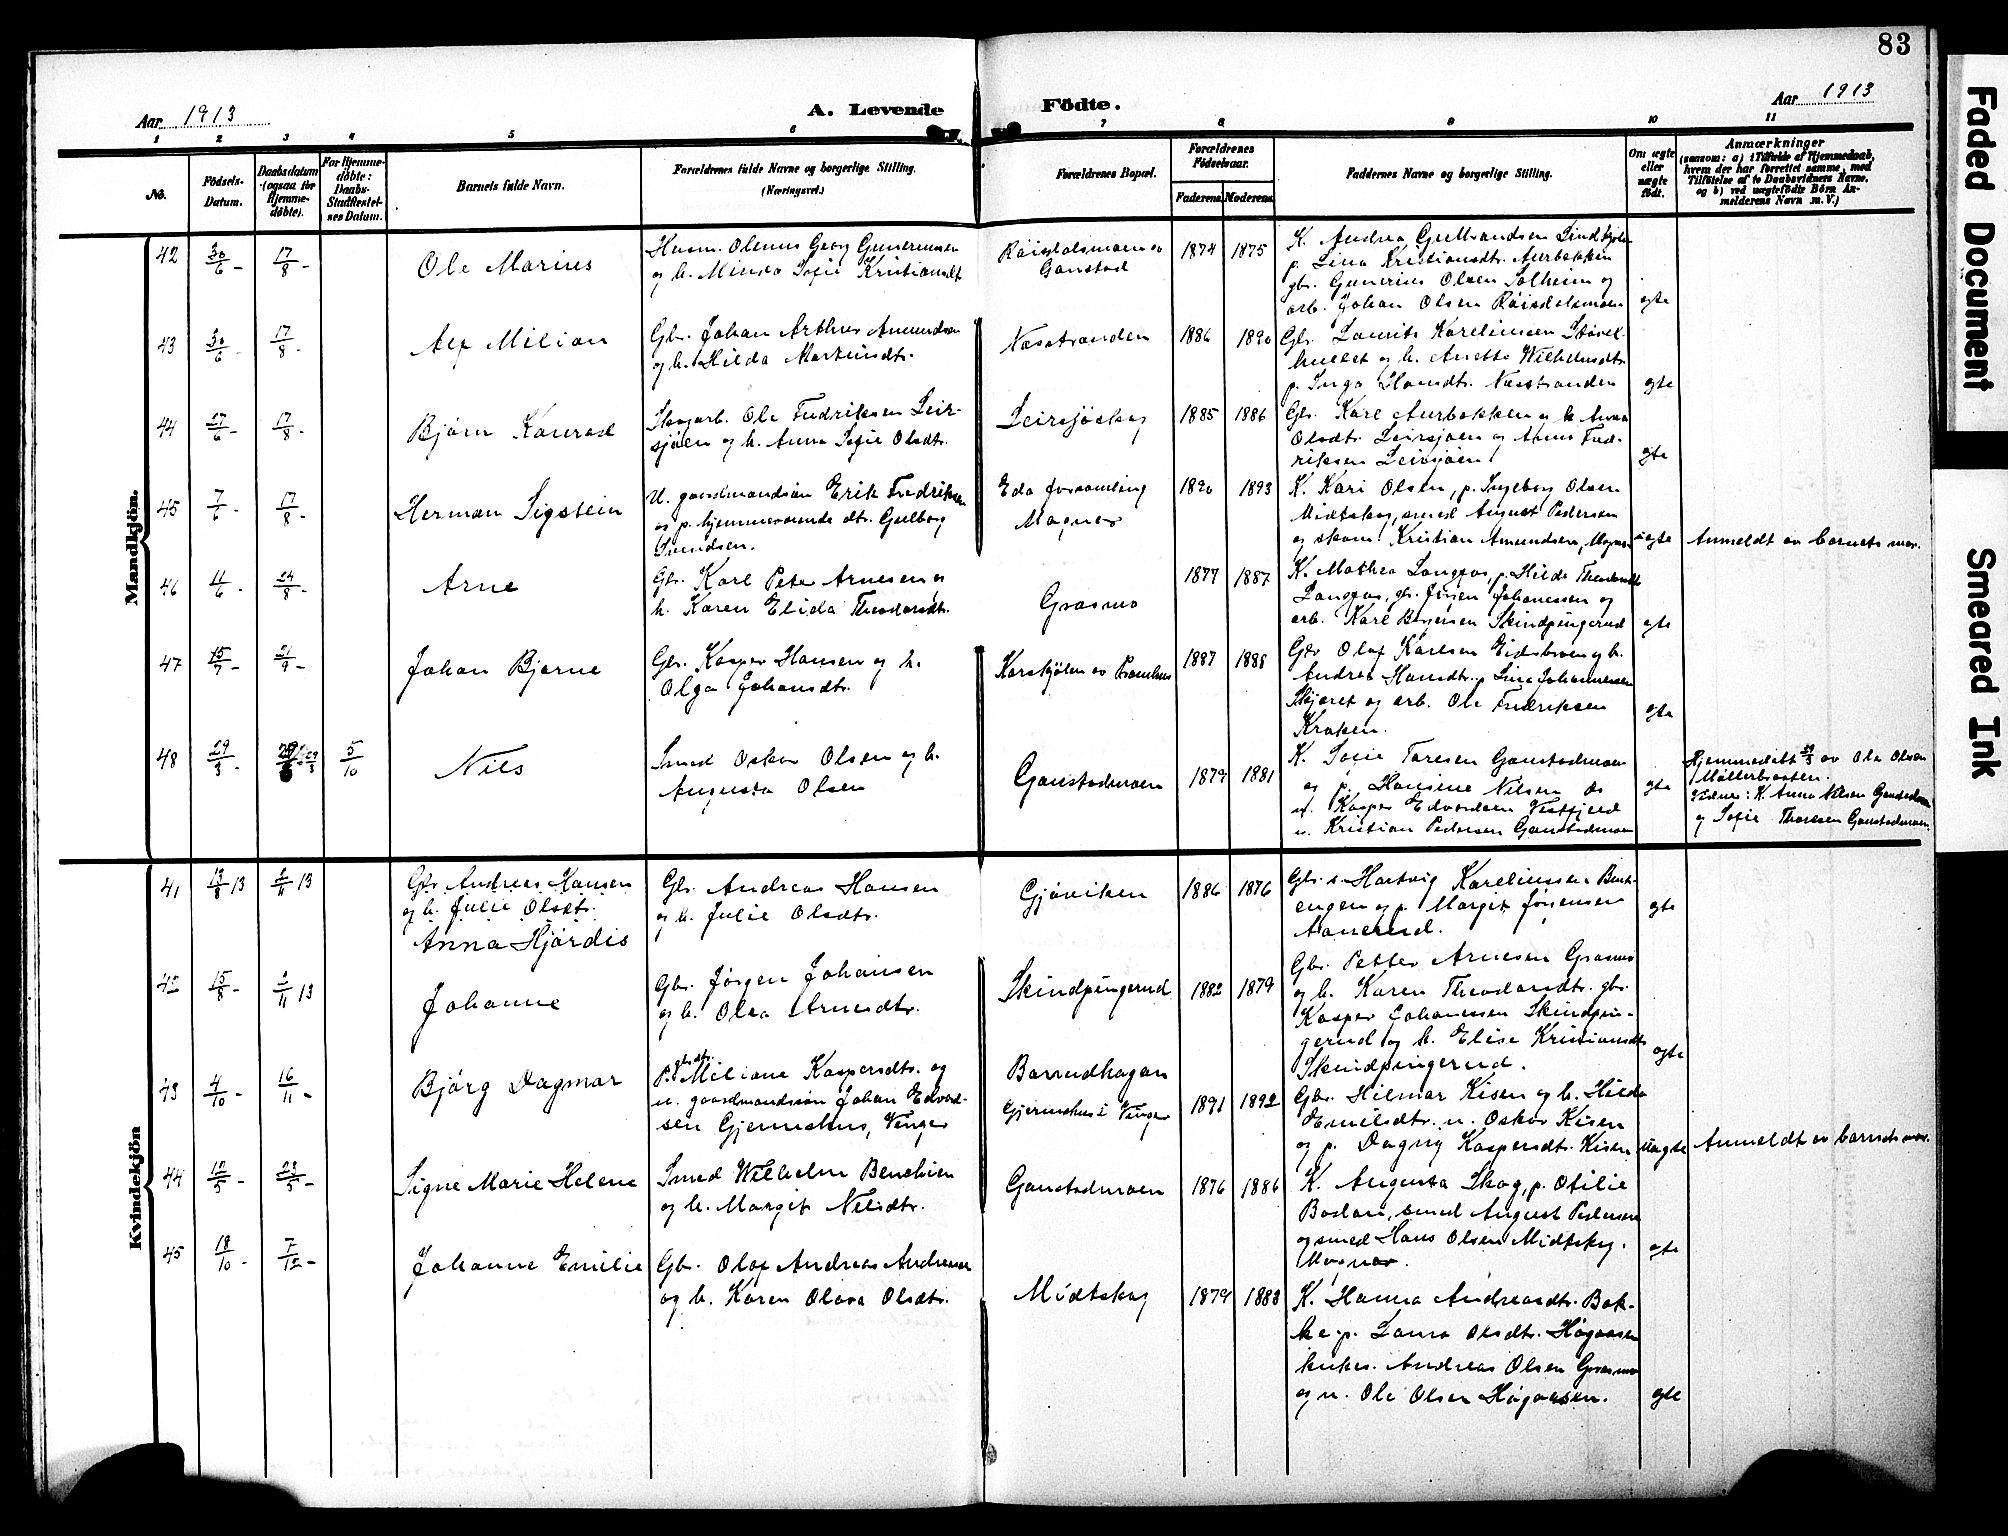 83
Aar 1913
A. Levende
Födte.
Aar 1913
1 2 3 4 5 6 7 8 9 10 11
No.
Födsels-
Datum.
Daabsdatum
(ogsaa for
Hjemme-
døbte).
For Hjemme-
døbte:
Daabs-
Stadfæstel-
ses Datum.
Barnets fulde Navn.
Forældrenes fulde Navne og borgerlige Stilling.
(Næringsvei.)
Forældrenes Bopæl.
Forældrenes
Födselsaar.
Faderens.
Moderens.
Faddernes Navne og borgerlige Stilling.
Om ægte
eller
uægte
født.
Anmærkninger
(saasom: a) i Tilfælde af Hjemmedaab,
hvem der har forrettet samme, med
Tilföielse af to Daabsvidners Navne,
og b) ved uægtefødte Börn An-
melderens Navn m. V.)
Mandkjön.
42
30/6 -
17/8 -
Ole Marius
Husm. Olenus Georg Gunerius
og h. Minda Sofie Kristiansdt.
Røisdalsmoen av
Gaustad
1874
1875
K. Andrea Gulbrandsen
p. Lina Kristiansdtr. Aurbakken
gbr. Gunerius Olsen Solheim og
arb. Johan Olsen Røisdalsmoen
egte
43
30/6 -
17/8 -
Alf Milian
Gbr. Johan Arthur Amundsen
og h. Hilda Martinsdtr.
Næsstranden
1886
1890
Gbr. Laurits Kareliussen Støvel-
hullet og h. Anette Wilhelmsdtr.
p. Inga Hansdtr. Næsstranden
egte
44
27/6 -
17/8 -
Bjørn Konrad
Skogarb. Ole Fredriksen Leir-
sjøen og h. Anna Sofie Olsdtr.
Leirsjøskog
1885
1886
Gbr. Karl Aurbakken og h. Anna
Olsdtr. Leirsjøen og Fred-
riksen Leirsjøen
egte
45
7/6 -
17/8 -
Herman Sigstein
U. gaardmandsøn Erik Fredriksen
og p. hjemmeværende dtr. Gulborg
Svendsen.
Eda forsamling
Magnor
1890
1893
K. Kari Olsen, p. Ingeborg Olsen
Midtskog, smed August Pedersen
og skom. Kristian Amundsen, Magnor
uegte
Anmeldt av barnets mor.
46
11/6 -
24/8 -
Arne
Gbr. Karl Peter Arnesen og
h. Karen Elida Theodorsdtr.
Grasmo
1877
1887
K. Mathea Langfos, p. Hilda Theodorsdtr.
Langfos, gbr. Jørgen Johanessen og
arb. Karl Børjesen Skindpungerud
egte
47
15/7 -
21/9 -
Johan Bjarne
Gbr. Kasper Hansen og h.
Olga Johansdtr.
Karskjølen av Pramhus
1887
1888
Gbr Olaf Karlsen Eidsbroen og h.
Andrea Hansdtr. p. Lina Johannessen
Skjæret og arb. Ole Fredriksen
Kroken.
egte
48
29/3 -
29/3
5/10
Nils
Smed Oskar Olsen og h.
Augusta Olsen
Gaustadmoen
1879
1881
K. Sofie Toresen Gaustadmoen
og p. Hansine Nilsen ds
u. Kasper Edvardsen Vestfjeld
u. Kristian Pedersen Gaustadmoen
egte
Hjemmedøbt 29/3 av Ole Olsen
Møllerbraaten.
Vidner: K. Anna Nilsen Gaustadm
og Sofie Thoresen Gaustadmoen.
Kvindekjön
41
13/8 13
2/11 13
Gbr Andreas Hansen
og h. Julie Olsdtr.
Anna Hjørdis
Gbr. Andreas Hansen
og h. Julie Olsdtr.
Gjøviken
1886
1876
Gbr. s. Hartvig Kareliussen Bent-
engen og p. Margit Jørgensen
Aanerud.
egte
42
15/8 -
2/11 13
Johanne
Gbr. Jørgen Johansen
og h. Olea Arnesdtr.
Skindpungerud
1882
1879
Gbr. Petter Arnesen Grasmo
og h. Karen Theodorsdtr. gbr.
Kasper Johanessen Skindpun-
gerud og h. Elise Kristiansdtr.
Skindpungerud.
egte
43
4/10 -
16/11 -
Bjørg Dagmar
P. gbrdtr. Miliane Kaspersdtr. og
u. gaardmandsøn Johan Edvard-
sen Gjermshus, Vinger
Barrudhagan
Gjermshus i Vinger
1891
1892
Gbr. Hilmar Kisen og h. Hilda
Emilsdtr. u. Oskar Kisen
og p. Dagny Kaspersdtr. Kisen
uegte
Anmeldt av barnets mor.
44
12/5 -
23/5 -
Signe Marie Helene
Smed Wilhelm Bendixen
og h. Margit Nilsdtr.
Gaustadmoen
1876
1886
K. Augusta Skog, p. Otilie
Bøslan, smed August Pedersen
og smed Hans Olsen Midtskog.
Magnor.
egte
45
18/10 -
7/12 -
Johanne Emilie
Gbr. Olaf Andreas Andersen
og h. Karen Olava Olsdtr.
Midtskog
1879
1883
K. Hanna Andreasdtr. Bak-
ke, p. Laura Olsdtr. Høgaasen
kirkes. Andreas Olsen Grasmo
og u. Ole Olsen Høgaasen.
egte
Faded Document
Smeared Ink